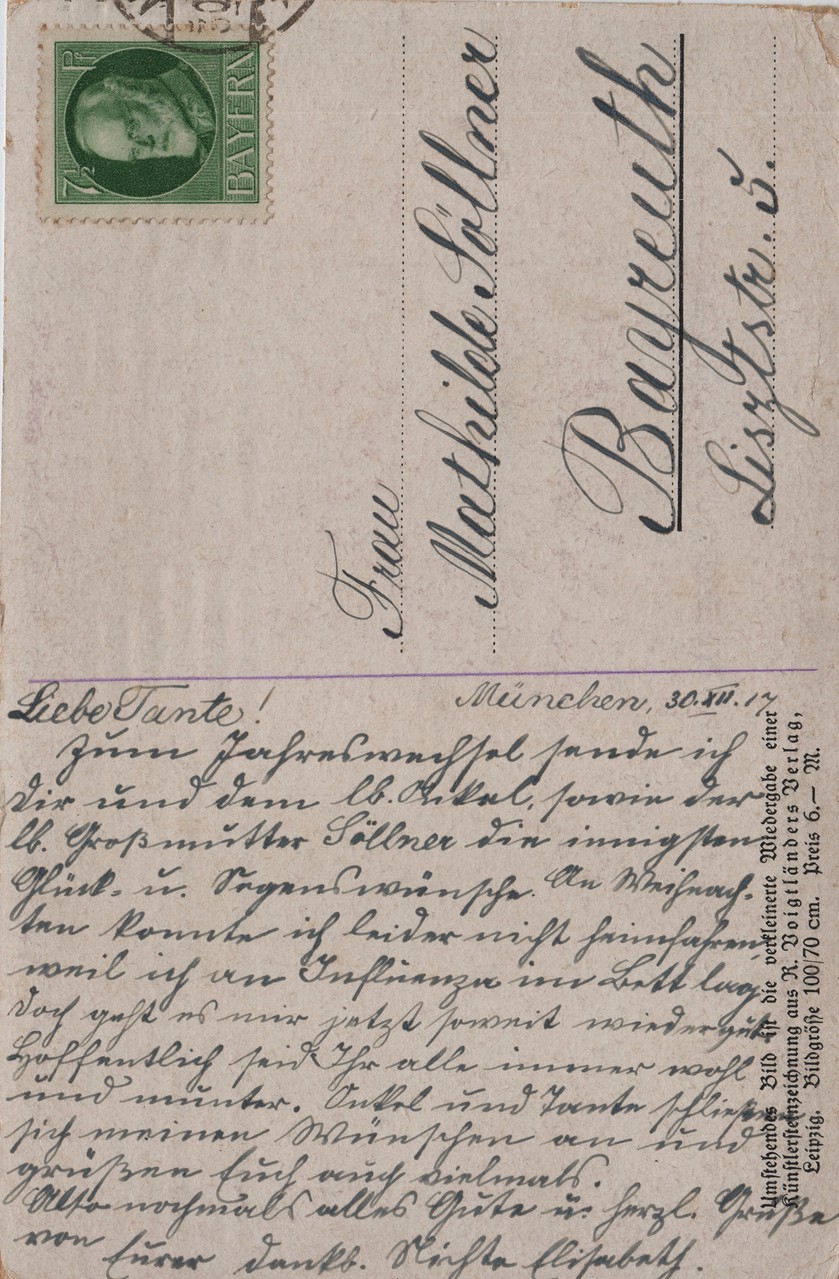 7½ Pf
BAYERN
Frau
Mathilde Söllner
Bayreuth
Lisztstr. 5.
Liebe Tante!
München, 30.XII.17
Zum Jahreswechsel sende ich
Dir und dem lb. Onkel, sowie der
lb. Großmutter Söllner die innigsten
Glück- u. Segenswünsche. An Weihnach-
ten konnte ich leider nicht heimfahren,
weil ich an Influenza im Bett lag.
Doch geht es mir jetzt soweit wieder gut.
Hoffentlich seid Ihr alle immer wohl
und munter. Onkel und Tante schließen
sich meinen Wünschen an und
grüßen Euch auch vielmals.
Also nochmals alles Gute u. herzl. Grüße
von Eurer dankb. Nichte Elisabeth.
Umstehendes Bild ist die verkleinerte Wiedergabe einer
Künstlersteinzeichnung aus R. Voigtländers Verlag,
Leipzig. Bildgröße 100/70 cm. Preis 6.— M.